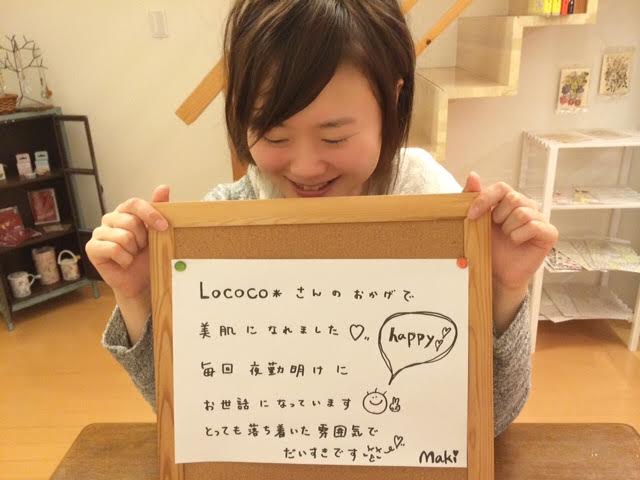 Lococo* さんの おかげで
美肌に なれました♡
happy
毎回 夜勤明けに
お世話になっています
とっても 落ち着いた 雰囲気で
だいすきです
Maki